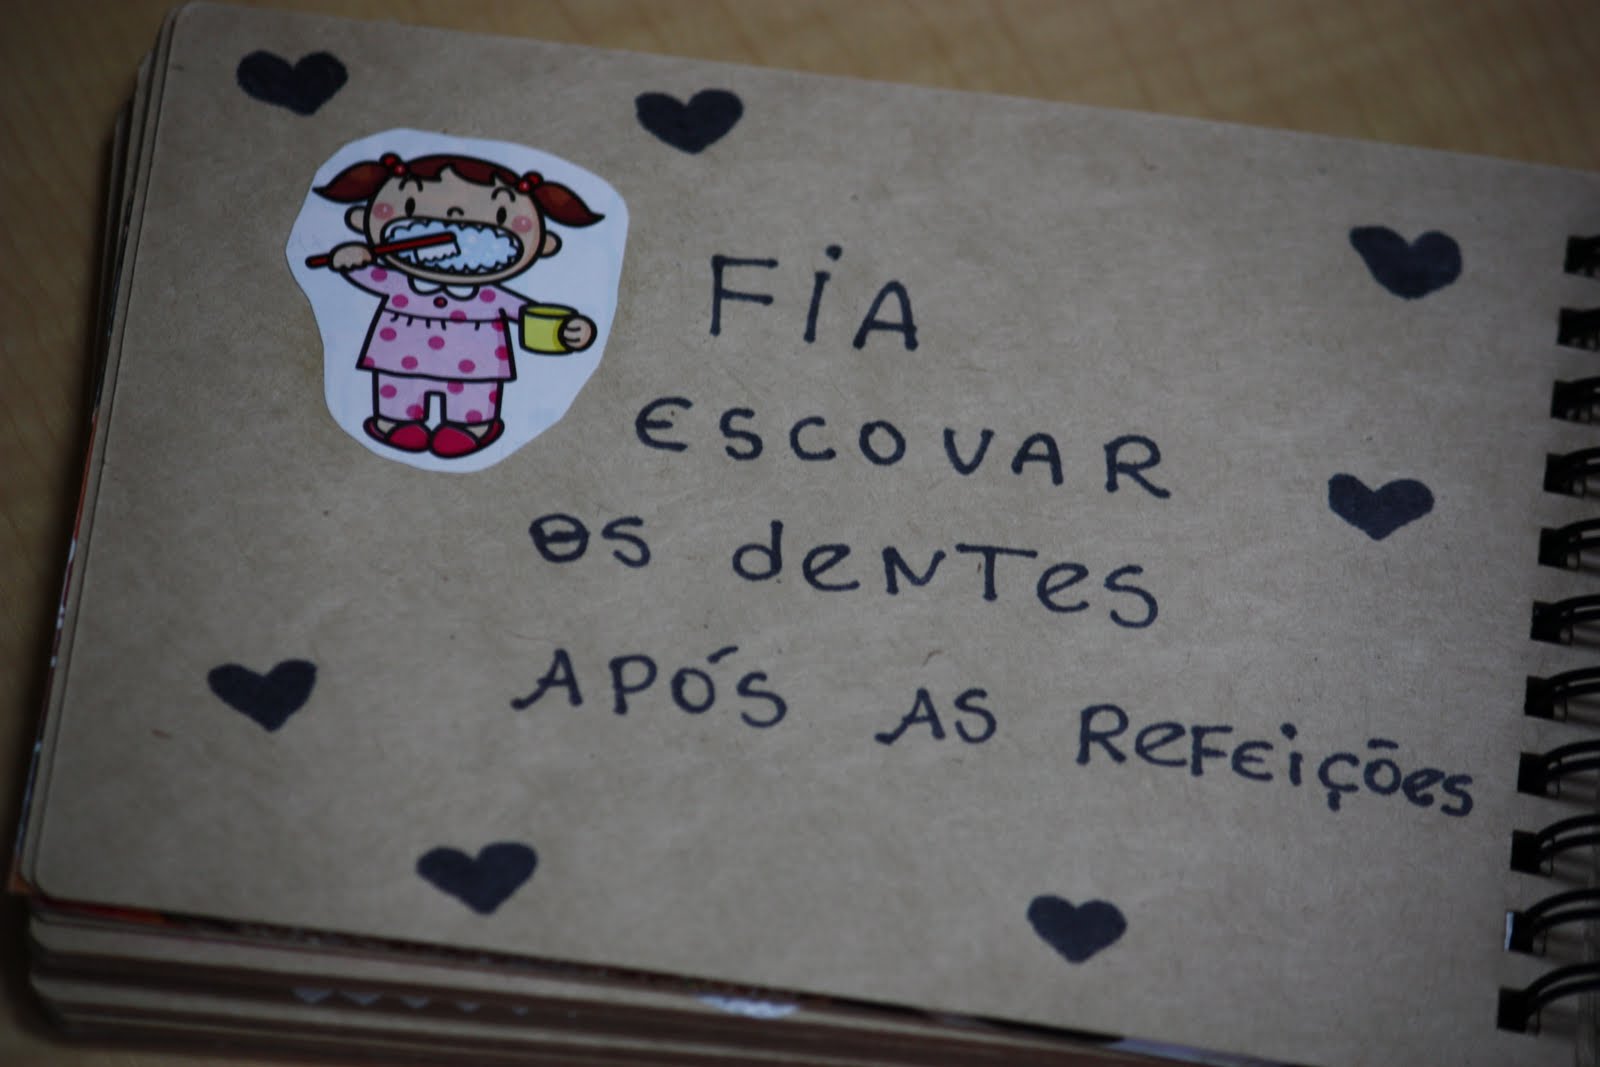 FiA
ESCOVAR
OS deNTeS
APÓS AS ReFEiÇÕeS